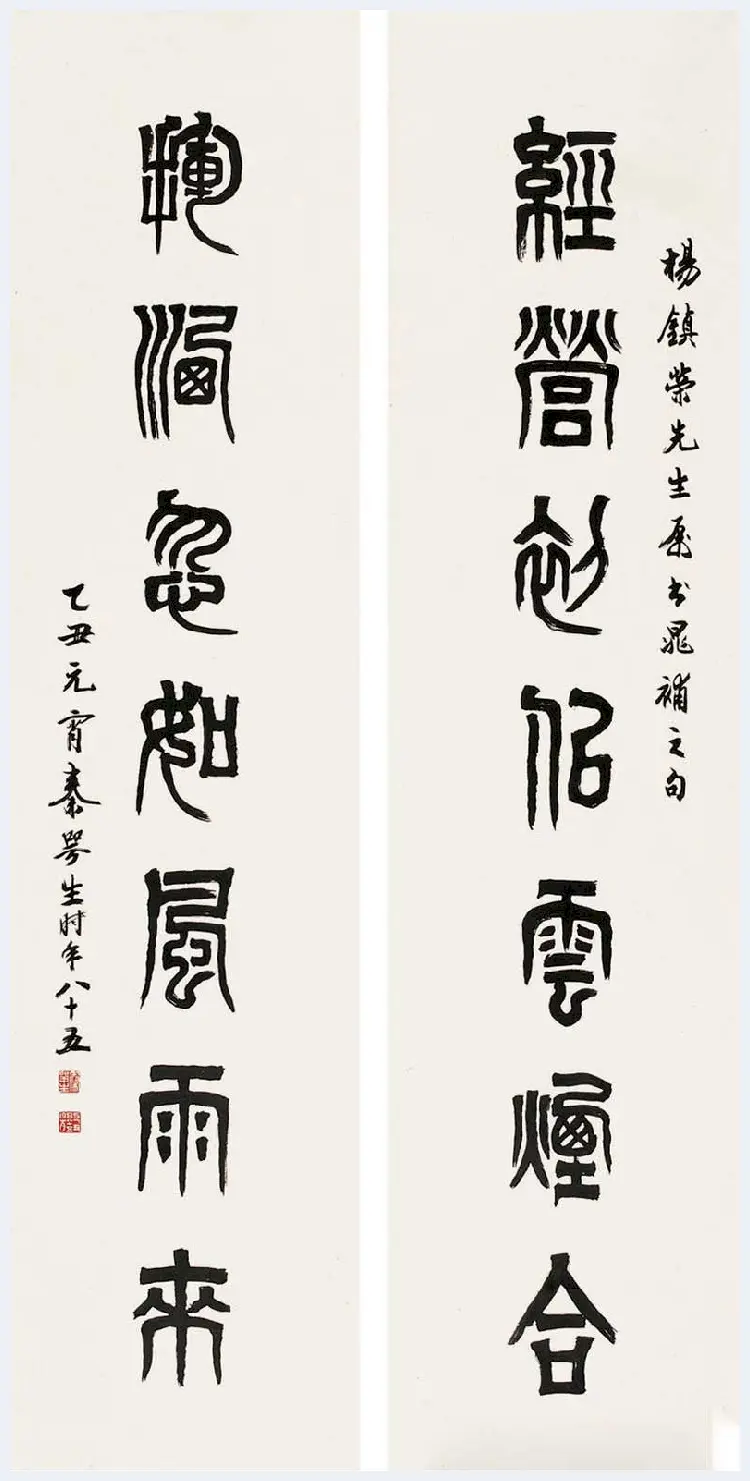 楊鎮榮先生屬书晁補之句
經營初佀雲煙合
揮洒忽如風雨來
乙丑元宵秦咢生时年八十五